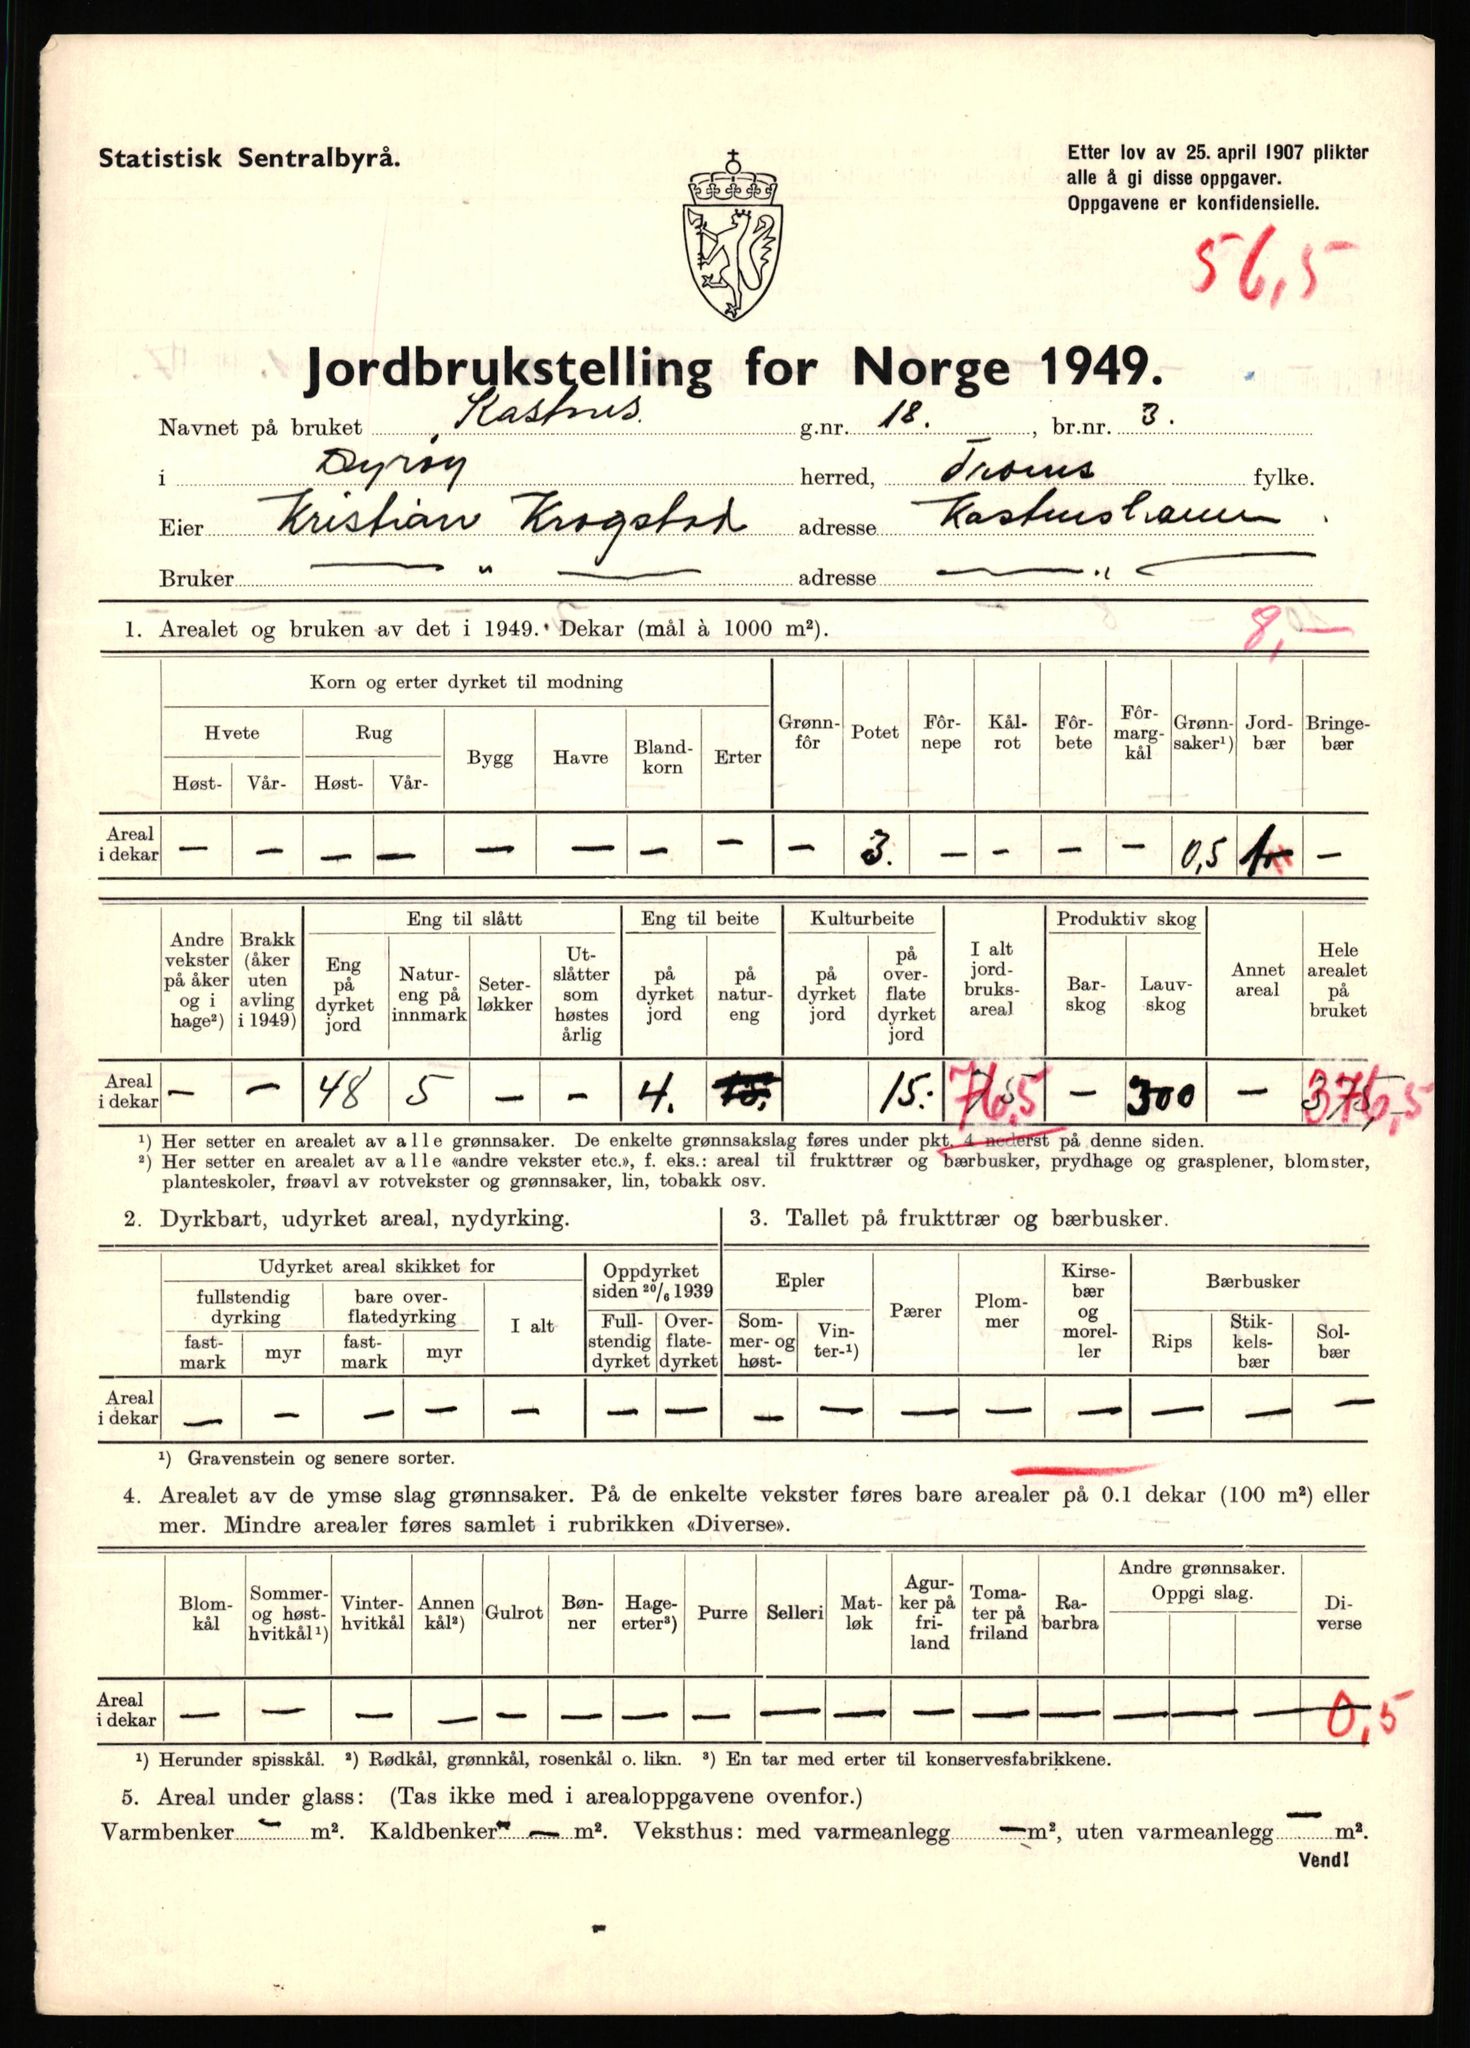 Statistisk Sentralbyrå.
Etter lov av 25. april 1907 plikter
alle å gi disse oppgaver.
Oppgavene er konfidensielle.
56,5
Jordbrukstelling for Norge 1949.
Navnet på bruket Kastnes. g.nr. 18. , br.nr. 3.
i Dyrøy herred, Troms fylke.
Eier Kristian Krogstad adresse Kastneshamn
Bruker — " — adresse — " —
1. Arealet og bruken av det i 1949. Dekar (mål à 1000 m²).
8,—
Korn og erter dyrket til modning
Hvete Rug Bygg Havre Bland-korn Erter Grønn-fôr Potet Fôr-nepe Kål-rot Fôr-bete Fôr-marg-kål Grønn-saker¹) Jord-bær Bringe-bær
Høst- Vår- Høst- Vår-
Areal i dekar — — — — — — — — — 3. — — — — 0,5 —
Eng til slått Eng til beite Kulturbeite Produktiv skog
Andre vekster på åker og i hage²) Brakk (åker uten avling i 1949) Eng på dyrket jord Natur-eng på innmark Seter-løkker Ut-slåtter som høstes årlig på dyrket jord på natur-eng på dyrket jord på over-flate dyrket jord I alt jord-bruks-areal Bar-skog Lauv-skog Annet areal Hele arealet på bruket
Areal i dekar — — 48 5 — — 4. 15. 15. 76,5 — 300 — 376,5
¹) Her setter en arealet av alle grønnsaker. De enkelte grønnsakslag føres under pkt. 4 nederst på denne siden.
²) Her setter en arealet av alle «andre vekster etc.», f. eks.: areal til frukttrær og bærbusker, prydhage og grasplener, blomster,
planteskoler, frøavl av rotvekster og grønnsaker, lin, tobakk osv.
2. Dyrkbart, udyrket areal, nydyrking.
Udyrket areal skikket for Oppdyrket siden 20/6 1939
fullstendig dyrking bare over-flatedyrking I alt Full-stendig dyrket Over-flate-dyrket
fast-mark myr fast-mark myr
3. Tallet på frukttrær og bærbusker.
Epler Pærer Plom-mer Kirse-bær og morel-ler Bærbusker
Som-mer- og høst- Vin-ter-¹) Rips Stik-kels-bær Sol-bær
Areal i dekar — — — — — — — — — — — — — — —
¹) Gravenstein og senere sorter.
4. Arealet av de ymse slag grønnsaker. På de enkelte vekster føres bare arealer på 0.1 dekar (100 m²) eller
mer. Mindre arealer føres samlet i rubrikken «Diverse».
Blom-kål Sommer- og høst-hvitkål¹) Vinter-hvitkål Annen kål²) Gulrot Bøn-ner Hage-erter³) Purre Selleri Mat-løk Agur-ker på fri-land Toma-ter på friland Ra-barbra Andre grønnsaker. Oppgi slag. Di-verse
Areal i dekar — — — — — — — — — — — — — — — — 0,5
¹) Herunder spisskål. ²) Rødkål, grønnkål, rosenkål o. likn. ³) En tar med erter til konservesfabrikkene.
5. Areal under glass: (Tas ikke med i arealoppgavene ovenfor.)
Varmbenker — m². Kaldbenker — m². Veksthus: med varmeanlegg — m², uten varmeanlegg — m².
Vend!